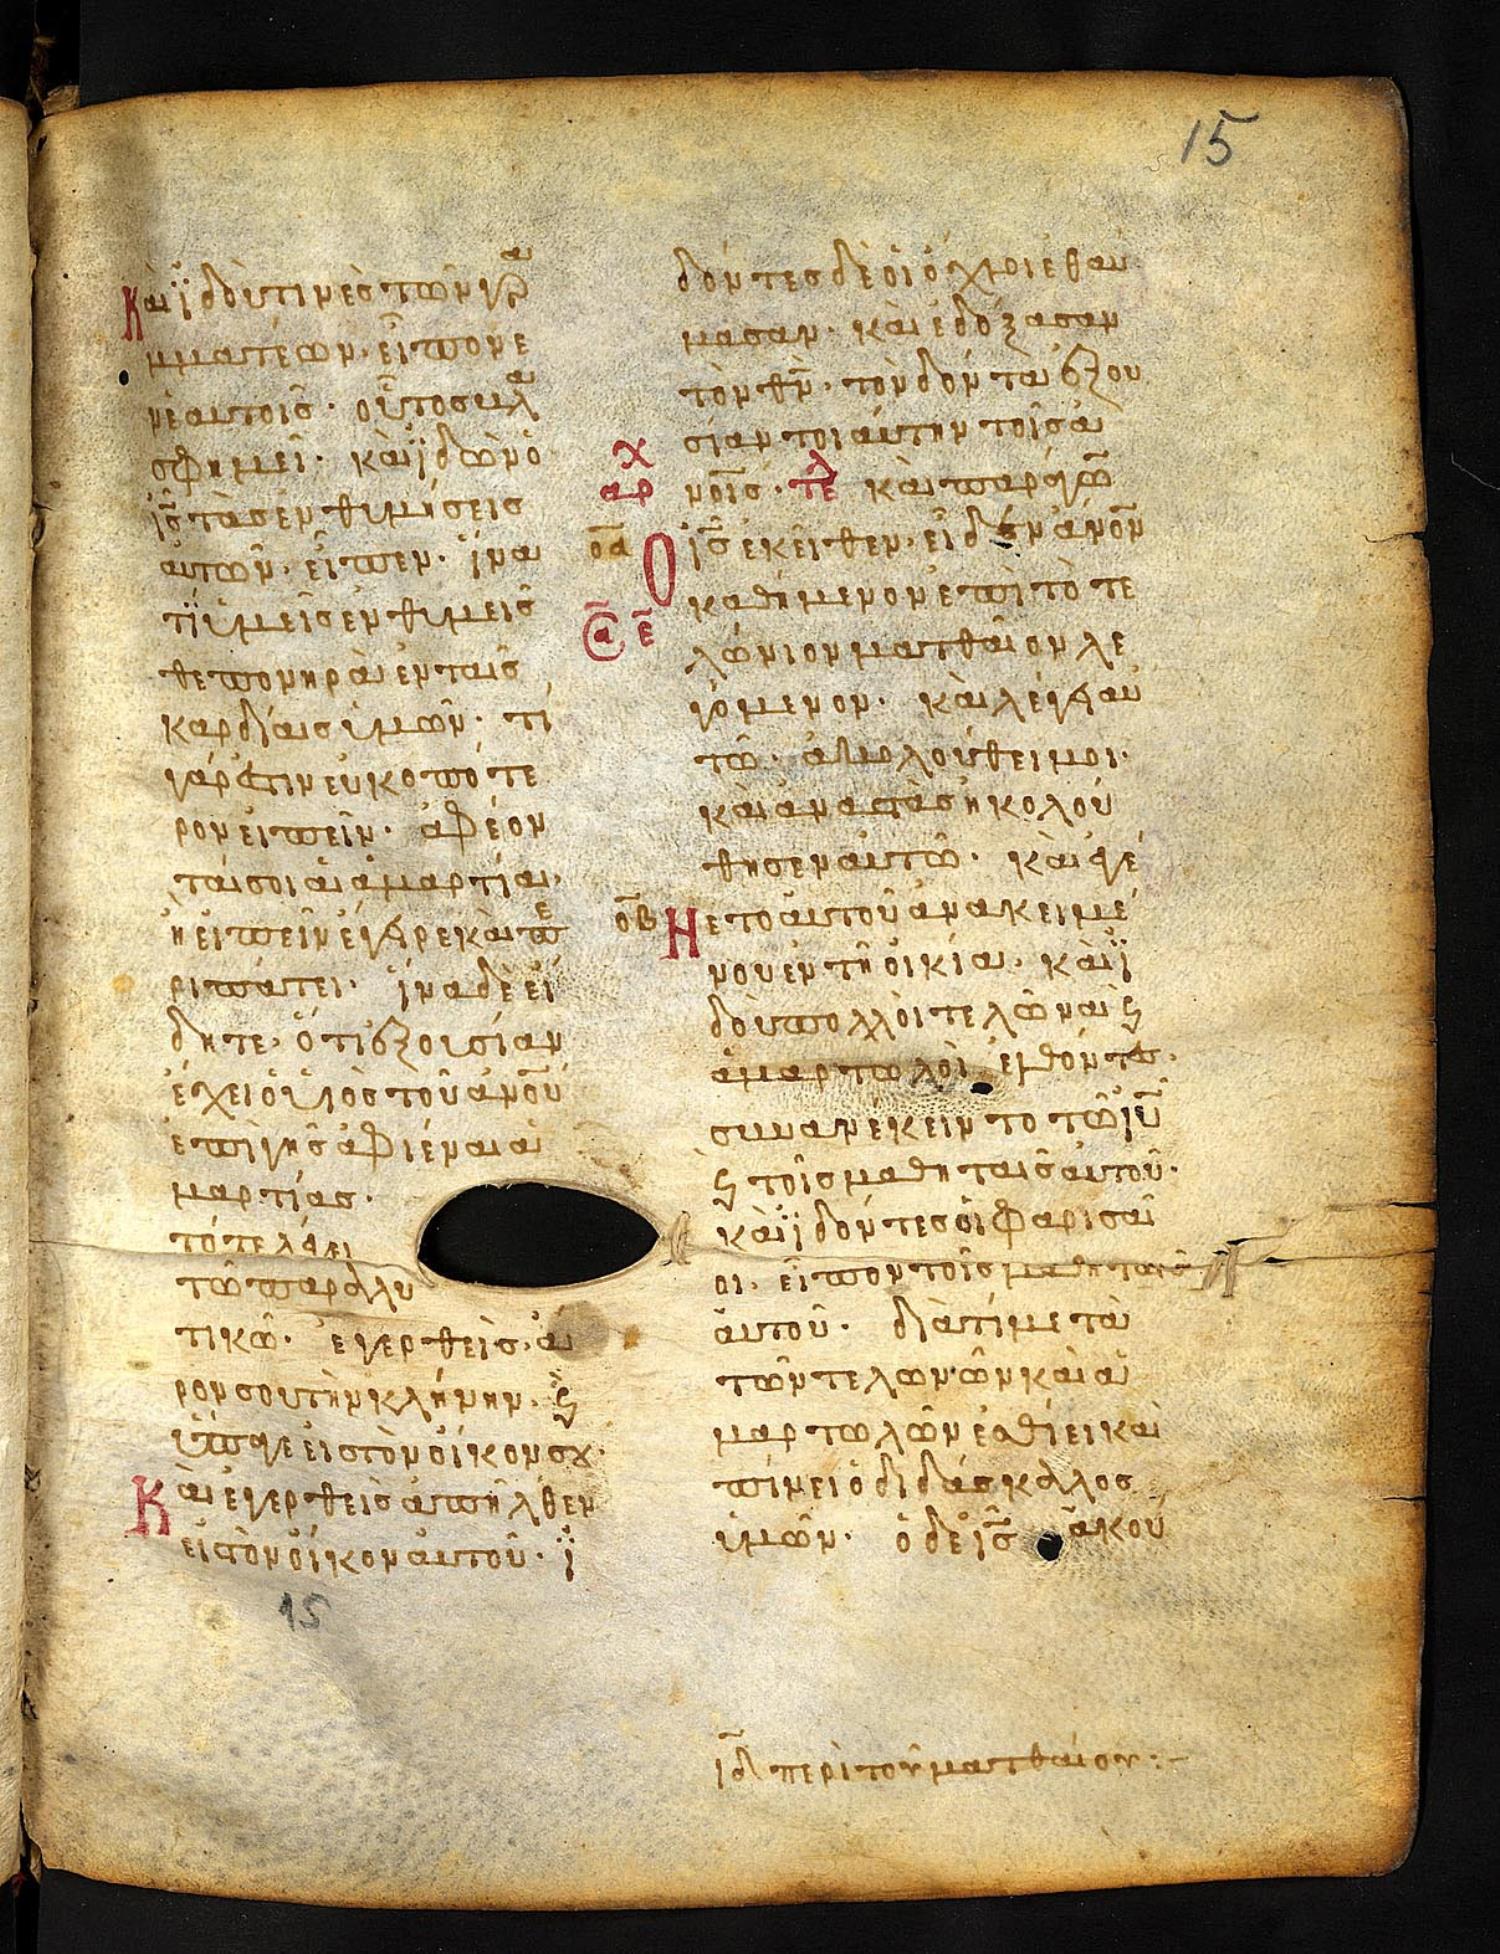 15
Καὶ ἰδού τινὲς τῶν γρα
μματέων· εἶπον ἐ
ν ἑαυτοῖς· οὗτος βλα
σφημεῖ· καὶ ἰδὼν ὁ
ι̅ς̅ τὰς ἐνθυμήσεις
αὐτῶν· εἶπεν· ἵνα
τί ὑμεῖς ἐνθυμεῖσ
θε πονηρὰ ἐν ταῖς
καρδίαις ὑμῶν· τί
γάρ ἐστιν εὐκοπώτε
ρον εἰπεῖν· ἀφέων
ταί σοι αἱ ἁμαρτίαι·
ἢ εἰπεῖν ἔγειρε καὶ πε
ριπάτει· ἵνα δὲ εἰ
δῆτε· ὅτι ἐξουσίαν
ἔχει ὁ υἱὸς τοῦ α̅ν̅ο̅υ̅
ἐπὶ γῆς ἀφιέναι ἁ
μαρτίας·
τότε λέγει
τῷ παραλυ
τικῷ· ἐγερθεὶς· ἆ
ρον σου τὴν κλήνην· ϗ
ὕπαγε εἰς τὸν οἶκον σου·
Καὶ ἐγερθεὶς ἀπῆλθεν
εἰς τὸν οἶκον αὐτοῦ· ἰ
15
δόντες δὲ οἱ ὄχλοι ἐθαύ
μασαν· καὶ ἐδόξασαν
τὸν θ̅ν̅· τὸν δόντα ἐξου
σίαν τοιαύτην τοῖς ἀ
ν̅ο̅ις· τελ καὶ παράγων
αρχ
ο̅α̅ Ὁ ι̅ς̅ ἐκεῖθεν· εἶδεν α̅ν̅ο̅ν̅
καθήμενον ἐπὶ τὸ τε
α̅ ε̅
λώνιον ματθαῖον λε
γόμενον· καὶ λέγει αὐ
τῷ· ἀκολούθει μοι·
καὶ ἀναστὰς ἠκολού
θησεν αὐτῷ· καὶ ἐγέ
ο̅β̅ Νετο αὐτοῦ ἀνακειμέ
νου ἐν τῇ οἰκία· καὶ ἰ
δοὺ πολλοὶ τελῶναι ϗ
ἁμαρτωλοὶ ἐλθόντες·
συνανέκειντο τῷ ι̅υ̅
ϗ τοῖς μαθηταῖς αὐτοῦ·
καὶ ἰδόντες οἱ φαρισαῖ
οι· εἶπον τοῖς μαθηταῖς
αὐτοῦ· διὰ τί μετὰ
τῶν τελωνῶν καὶ ἁ
μαρτωλῶν ἐσθίει καὶ
πίνει ὁ διδάσκαλος
ὑμῶν· ὁ δὲ ι̅ς̅ ἀκού
ι̅δ̅ περὶ τοῦ ματθαίου:–